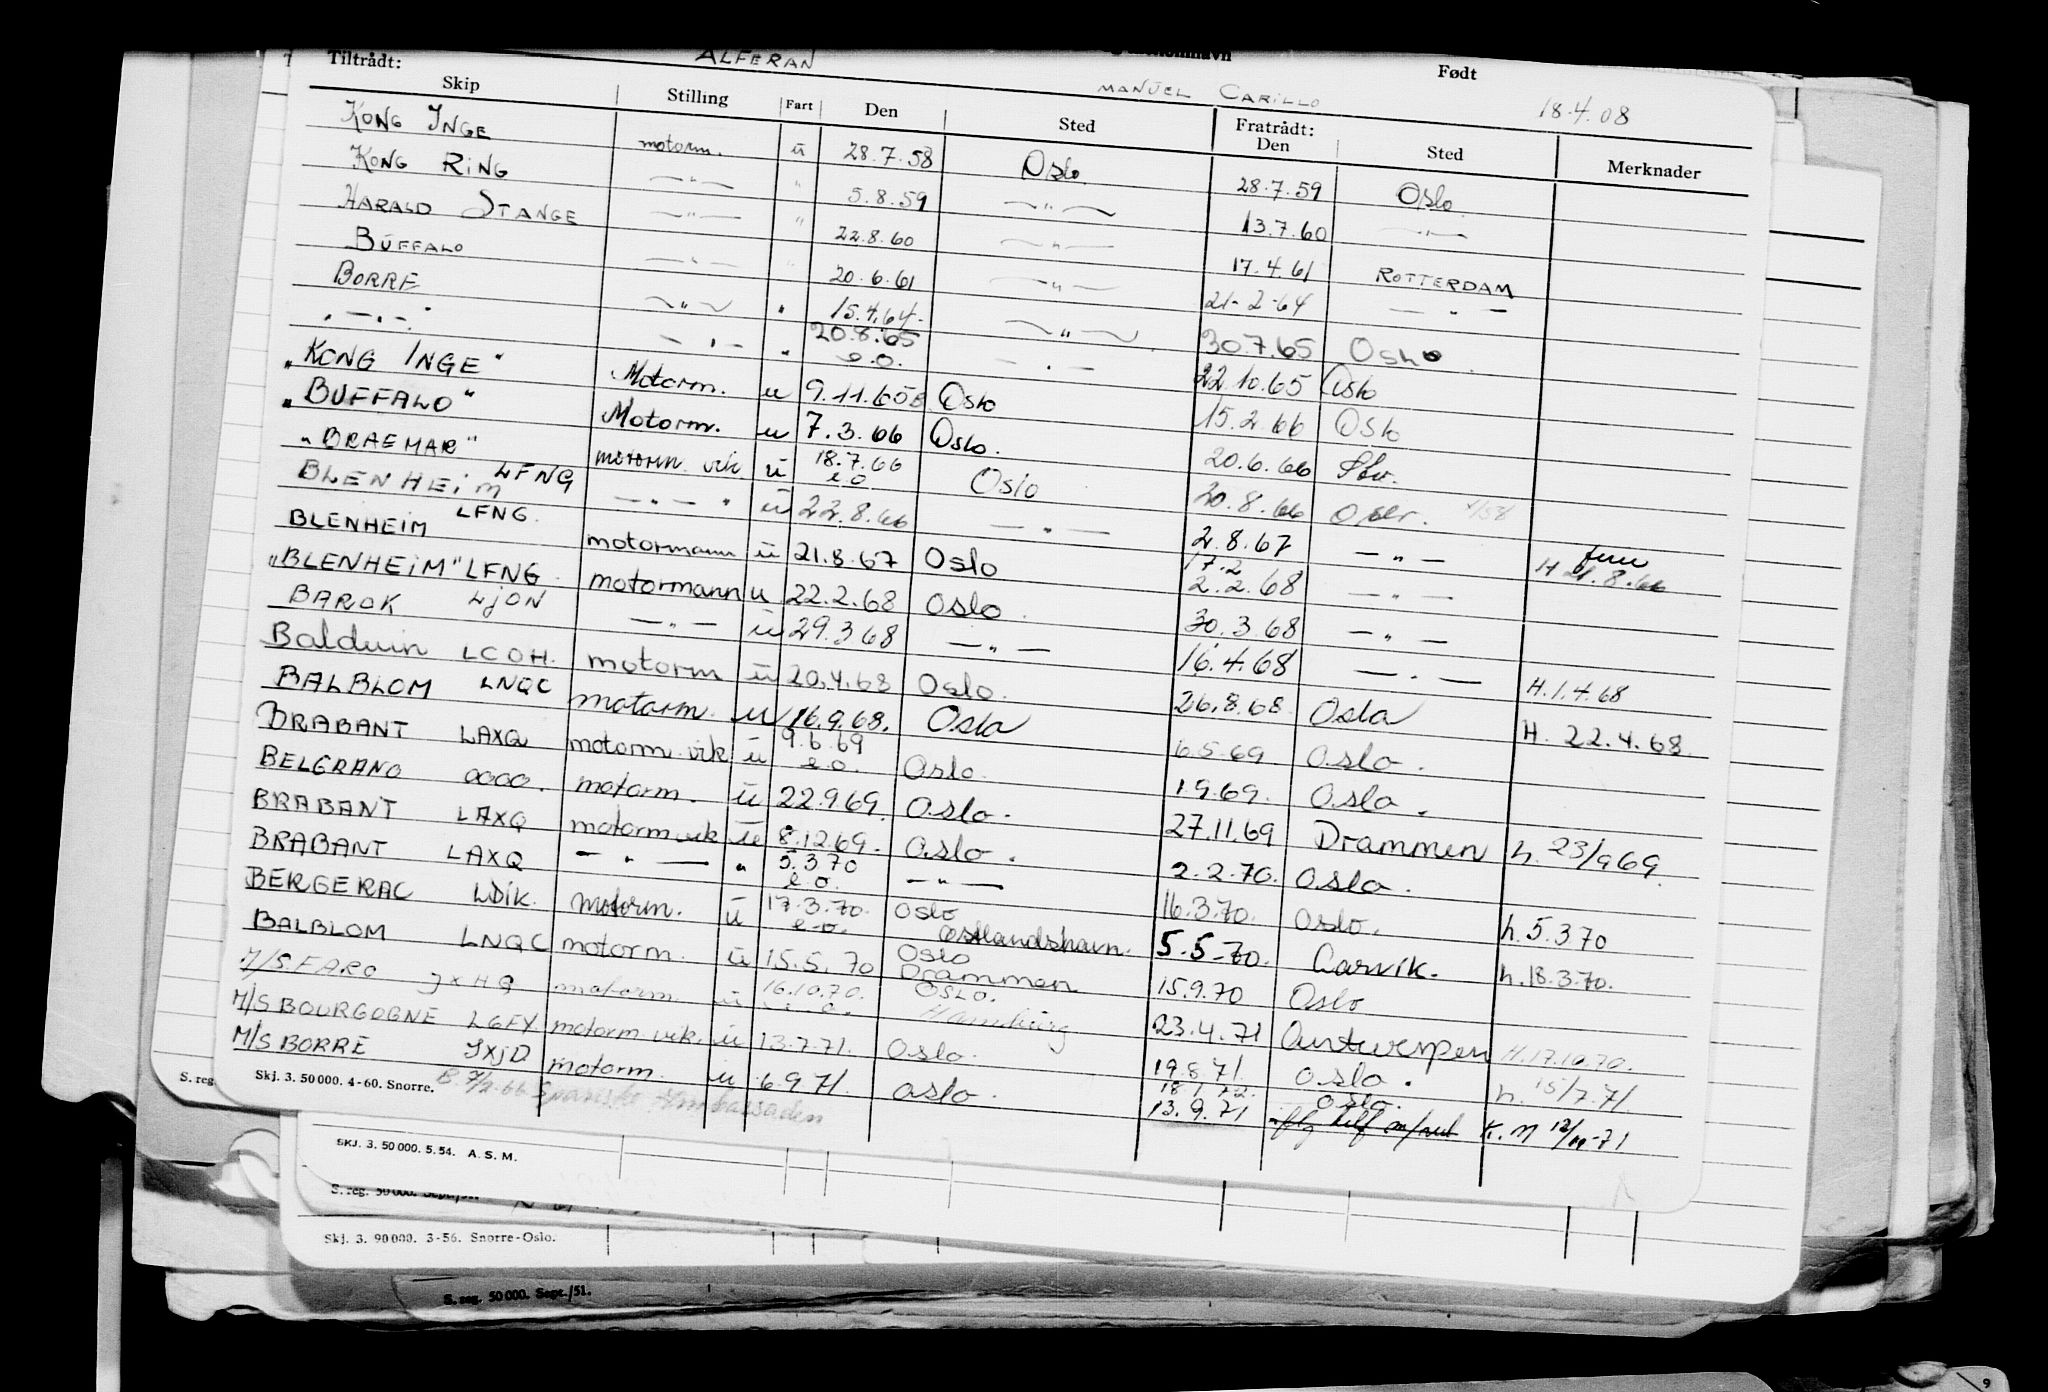 Tiltrådt: ALFERAN MANUEL CARILLO Født 18.4.08
Skip Stilling Fart Den Sted Fratrådt: Den Sted Merknader
KONG INGE motorm. u 28.7.58 Oslo 28.7.59 Oslo.
KONG RING —"— " 5.8.59 —"— 13.7.60 —"—
HARALD STANGE —"— " 22.8.60 —"— 17.4.61 ROTTERDAM
BUFFALO —"— " 20.6.61 —"— 21-2-64 — " —
BORRE —"— " 15.4.64. —"— 30.7.65 Oslo.
" — " — " — " — " 20.8.65 e.o. — " — 22.10.65 Oslo
"KONG INGE" Motorm. u 9.11.65 Oslo 15.2.66 Oslo
"BUFFALO" Motorm. u 7.3.66 Oslo. 20.6.66 Stv.
"BRAEMAR" motorm. vik. u 18.7.66 e.o Oslo 20.8.66 Oslo.
BLENHEIM LFNG — " — " u 22.8.66 — " — 2.8.67 — " — H 21.8.66
BLENHEIM LFNG. motormann u 21.8.67 Oslo 17.2 2.2.68 — " —
"BLENHEIM" LFNG. motormann u 22.2.68 Oslo. 30.3.68 — " —
BAROK LJON — " — u 29.3 68 — " — 16.4.68 — " — H.1.4.68
Balduin LCOH. motorm u 20.4.68 Oslo. 26.8.68 Oslo H. 22.4.68.
BALBLOM LNQC motorm. u 16.9.68. Oslo 6.5.69 Oslo.
BRABANT LAXQ motorm. vik u 9.6.69 e.o. Oslo. 1.9.69. Oslo.
BELGRANO OOOO. motorm. u 22.9 69. Oslo. 27.11.69 Drammen h. 23/9 69.
BRABANT LAXQ motorm vik u 8.12.69. Oslo. 2.2.70. Oslo.
BRABANT LAXQ — " — " 5.3 70 e.o. — " — 16.3.70. Oslo. h.5.3 70
BERGERAC LDIK. motorm. u 17.3.70. e.o. Oslo Østlandshavn. 5.5-70. Larvik. h.18.3.70.
BALBLOM LNQC motorm. u 15.5.70 Oslo Drammen 15.9.70 Oslo
M/S FARO JXHQ motorm. u 16.10.70. e.o. OSLO. Hamburg 23.4.71 Antwerpen H.17.10.70.
M/S BOURGOGNE LGFY motorm. vik. u 13.7.71. Oslo. 19.8 71. Oslo. h. 15/7.71
M/S BORRE JXJD motorm. u 6.9 71. Oslo. 18.1.72. Oslo.
13.9.71
Skj. 3. 50 000. 4-60. Snorre. Spanske Ambassaden
S. reg.
SKJ. 3. 50 000. 5.54. A. S. M.
S. reg. 50 000. Sept./51.
Skj. 3. 90 000. 3-56. Snorre-Oslo.
S. reg. 50 000. Sept./51.
9